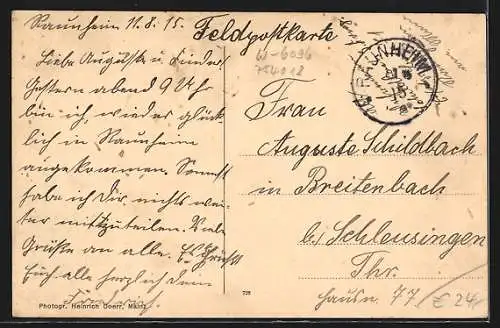 Raunheim 11.8.15.
Feldpostkarte
Liebe Auguste u. Kinder!
Gestern abend 9 Uhr
bin ich, wieder glück-
lich in Raunheim
angekommen. Sonnst
habe ich Dir nichts wei-
ter mitzuteilen. Viele
Grüße an alle. Es grüßt
Euch alle herzlich dein
RAUNHEIM
Frau
Auguste Schildbach
in Breitenbach
b/ Schleusingen
Thr.
Hausn. 77
€ 24,-
Photogr. Heinrich Doerr, Mainz.